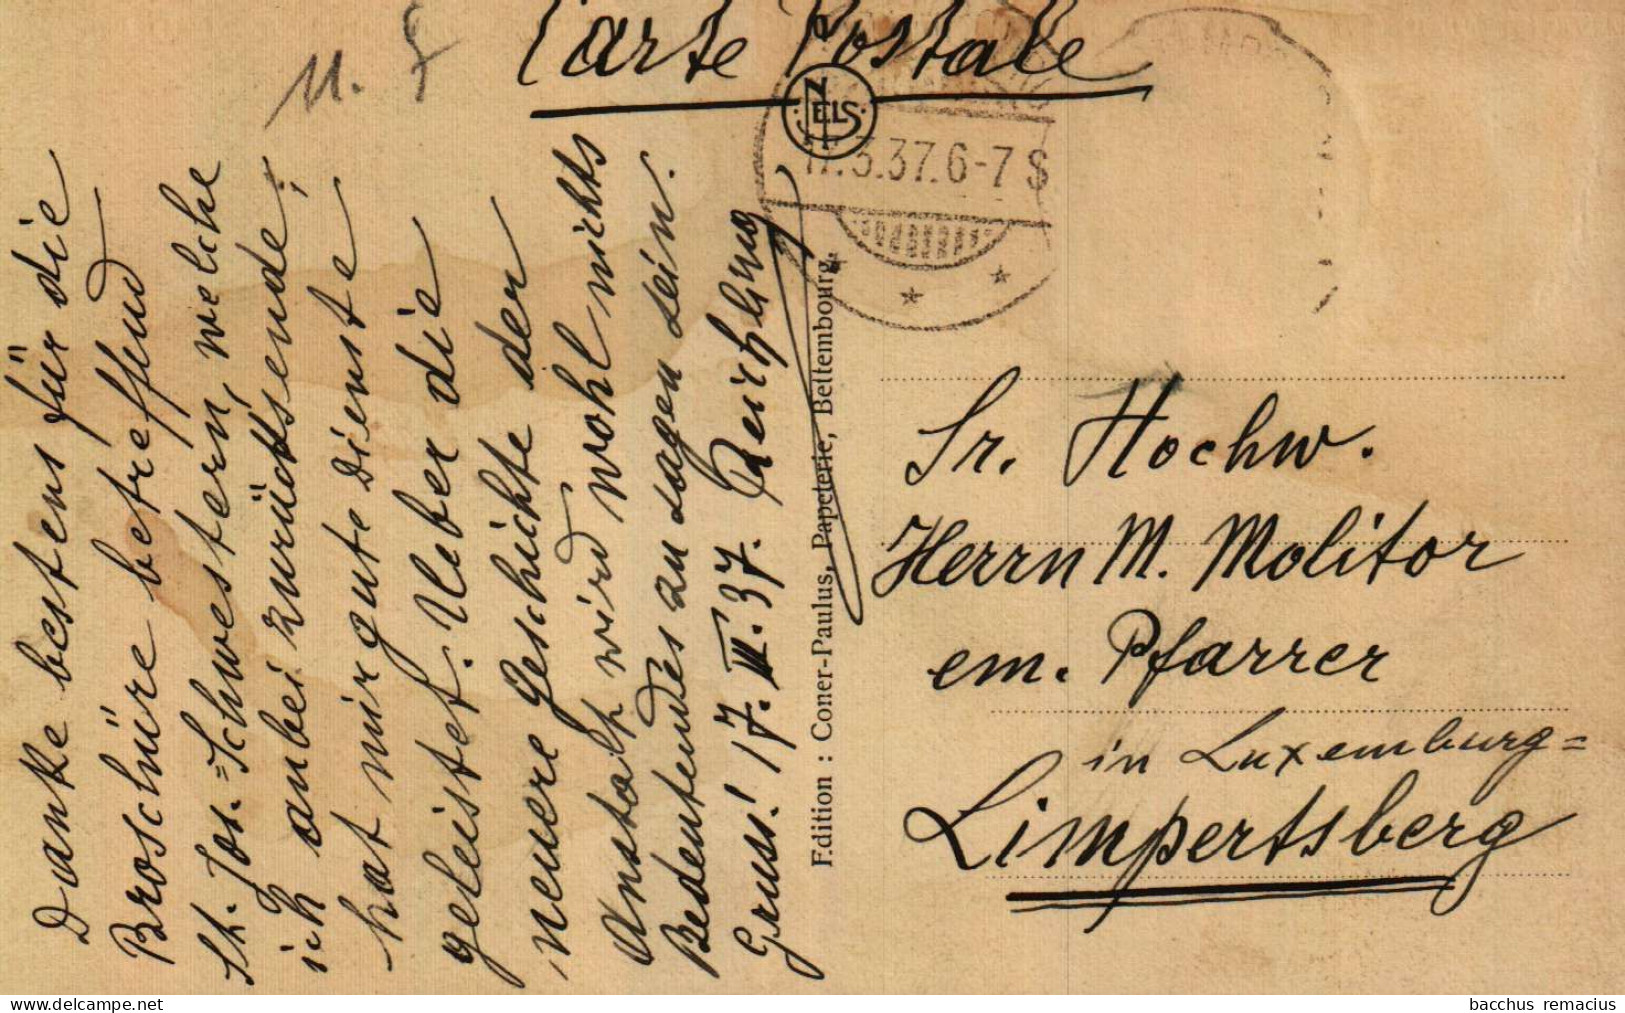 Carte Postale
NELS
17.3.37.6-7 S
Danke bestens für die
Broschüre betreffend
St. Jos.=Schwestern, welche
ich anbei zurücksende;
hat mir gute Dienste
geleistet. Ueber die
neuere Geschichte der
Anstalt wird wohl nichts
Bedeutendes zu sagen sein.
Gruss! 17. III. 37.
Edition : Coner-Paulus, Papeterie, Bettembourg.
Sr. Hochw.
Herrn M. Molitor
em. Pfarrer
in Luxemburg=
Limpertsberg
bacchus remacius